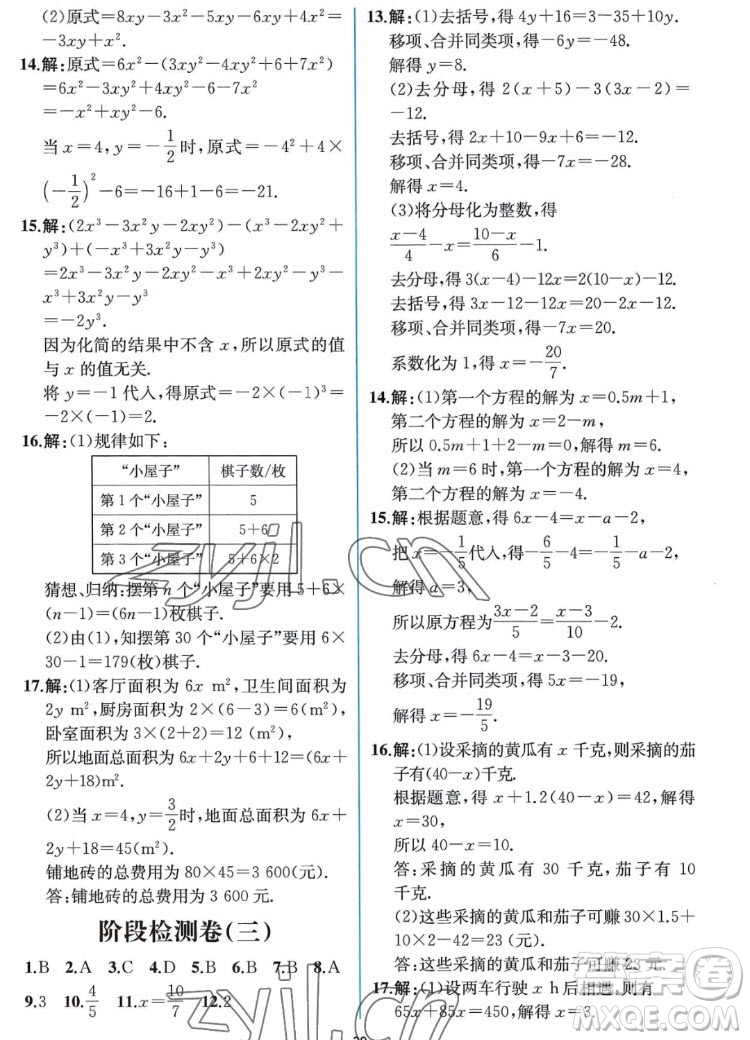 (2)原式=8xy-3x²-5xy-2(3xy-2x²)=
-3xy+x².
14.解:原式=6x²-(3xy-4xy+6+7x²)
=6x²-3xy+4xy-6-7x²
=-x²+xy-6.
当 x=4,y=-1/2时,原式=-4²+4×
(-1/2)²-6=-16+1-6=-21.
15.解:(2x³-3x²y-2xy²)-(x³-2xy²+
y³)+(-x³+3x²y-y³)
=2x³-3x²y-2xy²-x³+2xy²-y³-
x³+3x²y-y³
=-2y³.
因为化简的结果中不含 x,所以原式的值
与 x 的值无关.
将 y=-1 代入,得原式=-2×(-1)³=
-2×(-1)=2.
16.解:(1)规律如下:
“小屋子” 棋子数/枚
第 1 个“小屋子” 5
第 2 个“小屋子” 5+6
第 3 个“小屋子” 5+6×2
猜想、归纳:摆第 n 个“小屋子”要用 5+6×
(n-1)=(6n-1)枚棋子.
(2)由(1),知摆第 30 个“小屋子”要用 6×
30-1=179(枚)棋子.
17.解:(1)客厅面积为 6x m²,卫生间面积为
2y m²,厨房面积为 2×(6-3)=6(m²),
卧室面积为 3×(2+2)=12 (m²),
所以地面总面积为 6x+2y+6+12=(6x+
2y+18)m².
(2)当 x=4,y=3/2时,地面总面积为 6x+
2y+18=45(m²).
铺地砖的总费用为 80×45=3 600(元).
答:铺地砖的总费用为 3 600 元.
阶段检测卷(三)
1.B 2.A 3.C 4.D 5.B 6.B 7.B 8.A
9.3 10.4/5 11.x=10/7 12.2
13.解:(1)去括号,得 4y+16=3-35+10y.
移项、合并同类项,得-6y=-48.
解得 y=8.
(2)去分母,得 2(x+5)-3(3x-2)=
-12.
去括号,得 2x+10-9x+6=-12.
移项、合并同类项,得-7x=-28.
解得 x=4.
(3)将分母化为整数,得
(x-4)/4-x=(10-x)/6-1.
去分母,得 3(x-4)-12x=2(10-x)-12.
去括号,得 3x-12-12x=20-2x-12.
移项、合并同类项,得-7x=20.
系数化为 1,得 x=-20/7.
14.解:(1)第一个方程的解为 x=0.5m+1,
第二个方程的解为 x=2-m,
所以 0.5m+1+2=2-m,解得 m=-2/3.
(2)当 m=6 时,第一个方程的解为 x=4,
第二个方程的解为 x=-4.
15.解:根据题意,得 6x-4=x-a-2,
把 x=-1/5代入,得-6/5-4=-1/5-a-2,
解得 a=3,
所以原方程为(3x-2)/5=(x-3)/10-2.
去分母,得 6x-4=x-3-20.
移项、合并同类项,得 5x=-19,
解得 x=-19/5.
16.解:(1)设采摘的黄瓜有 x 千克,则采摘的茄
子有(40-x)千克.
根据题意,得 x+1.2(40-x)=42,解得
x=30,
所以 40-x=10.
答:采摘的黄瓜有 30 千克,茄子有 10
千克.
(2)这些采摘的黄瓜和茄子可赚 30×1.5+
10×2-42=23(元).
答:这些采摘的黄瓜和茄子可赚 23 元.
17.解:(1)设两车行驶 x h后相遇,则有
65x+85x=450,解得 x=3.
zyjl.cn
zyjl.cn